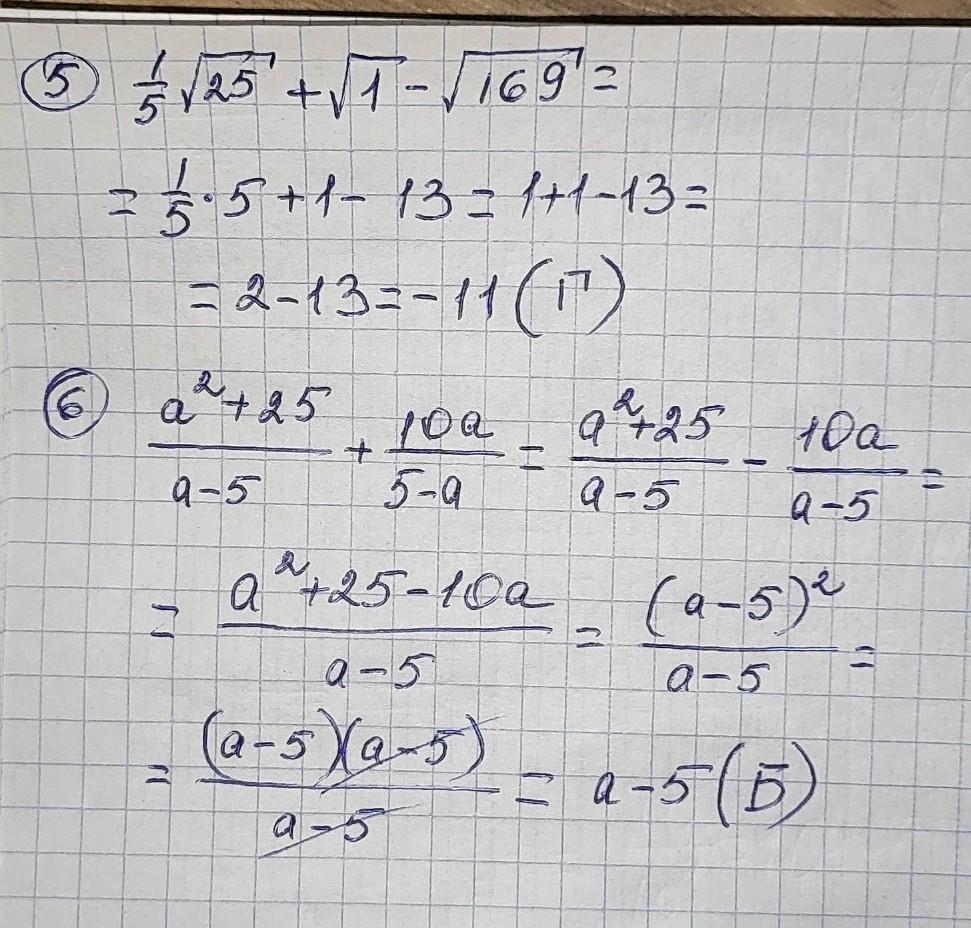 5 1/5 √25 + √1 - √169 =
= 1/5 · 5 + 1 - 13 = 1+1-13 =
= 2-13 = -11 (Г)
6 (a²+25)/(a-5) + 10a/(5-a) = (a²+25)/(a-5) - 10a/(a-5) =
= (a²+25-10a)/(a-5) = (a-5)²/(a-5) =
= (a-5)(a-5)/(a-5) = a-5 (Б)